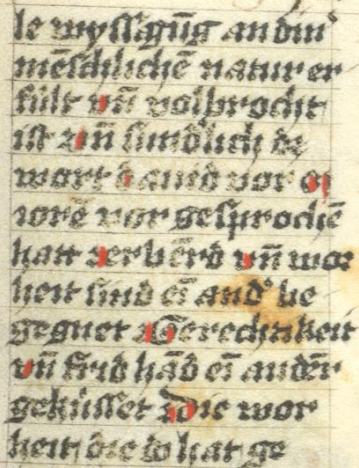 le wyssagūg an din͛
mēschlichē natur er
fült vn̄ volbrocht
ist vn̄ sundlich de
wort dauid vor
iorē vor gesprochē
hatt erbērd vn̄ wor
heit sind eī and͛ be
gegnet Gerechtikeit
vn̄ frid hād eī andēr
geküsset Die wor
heit die do hat ge